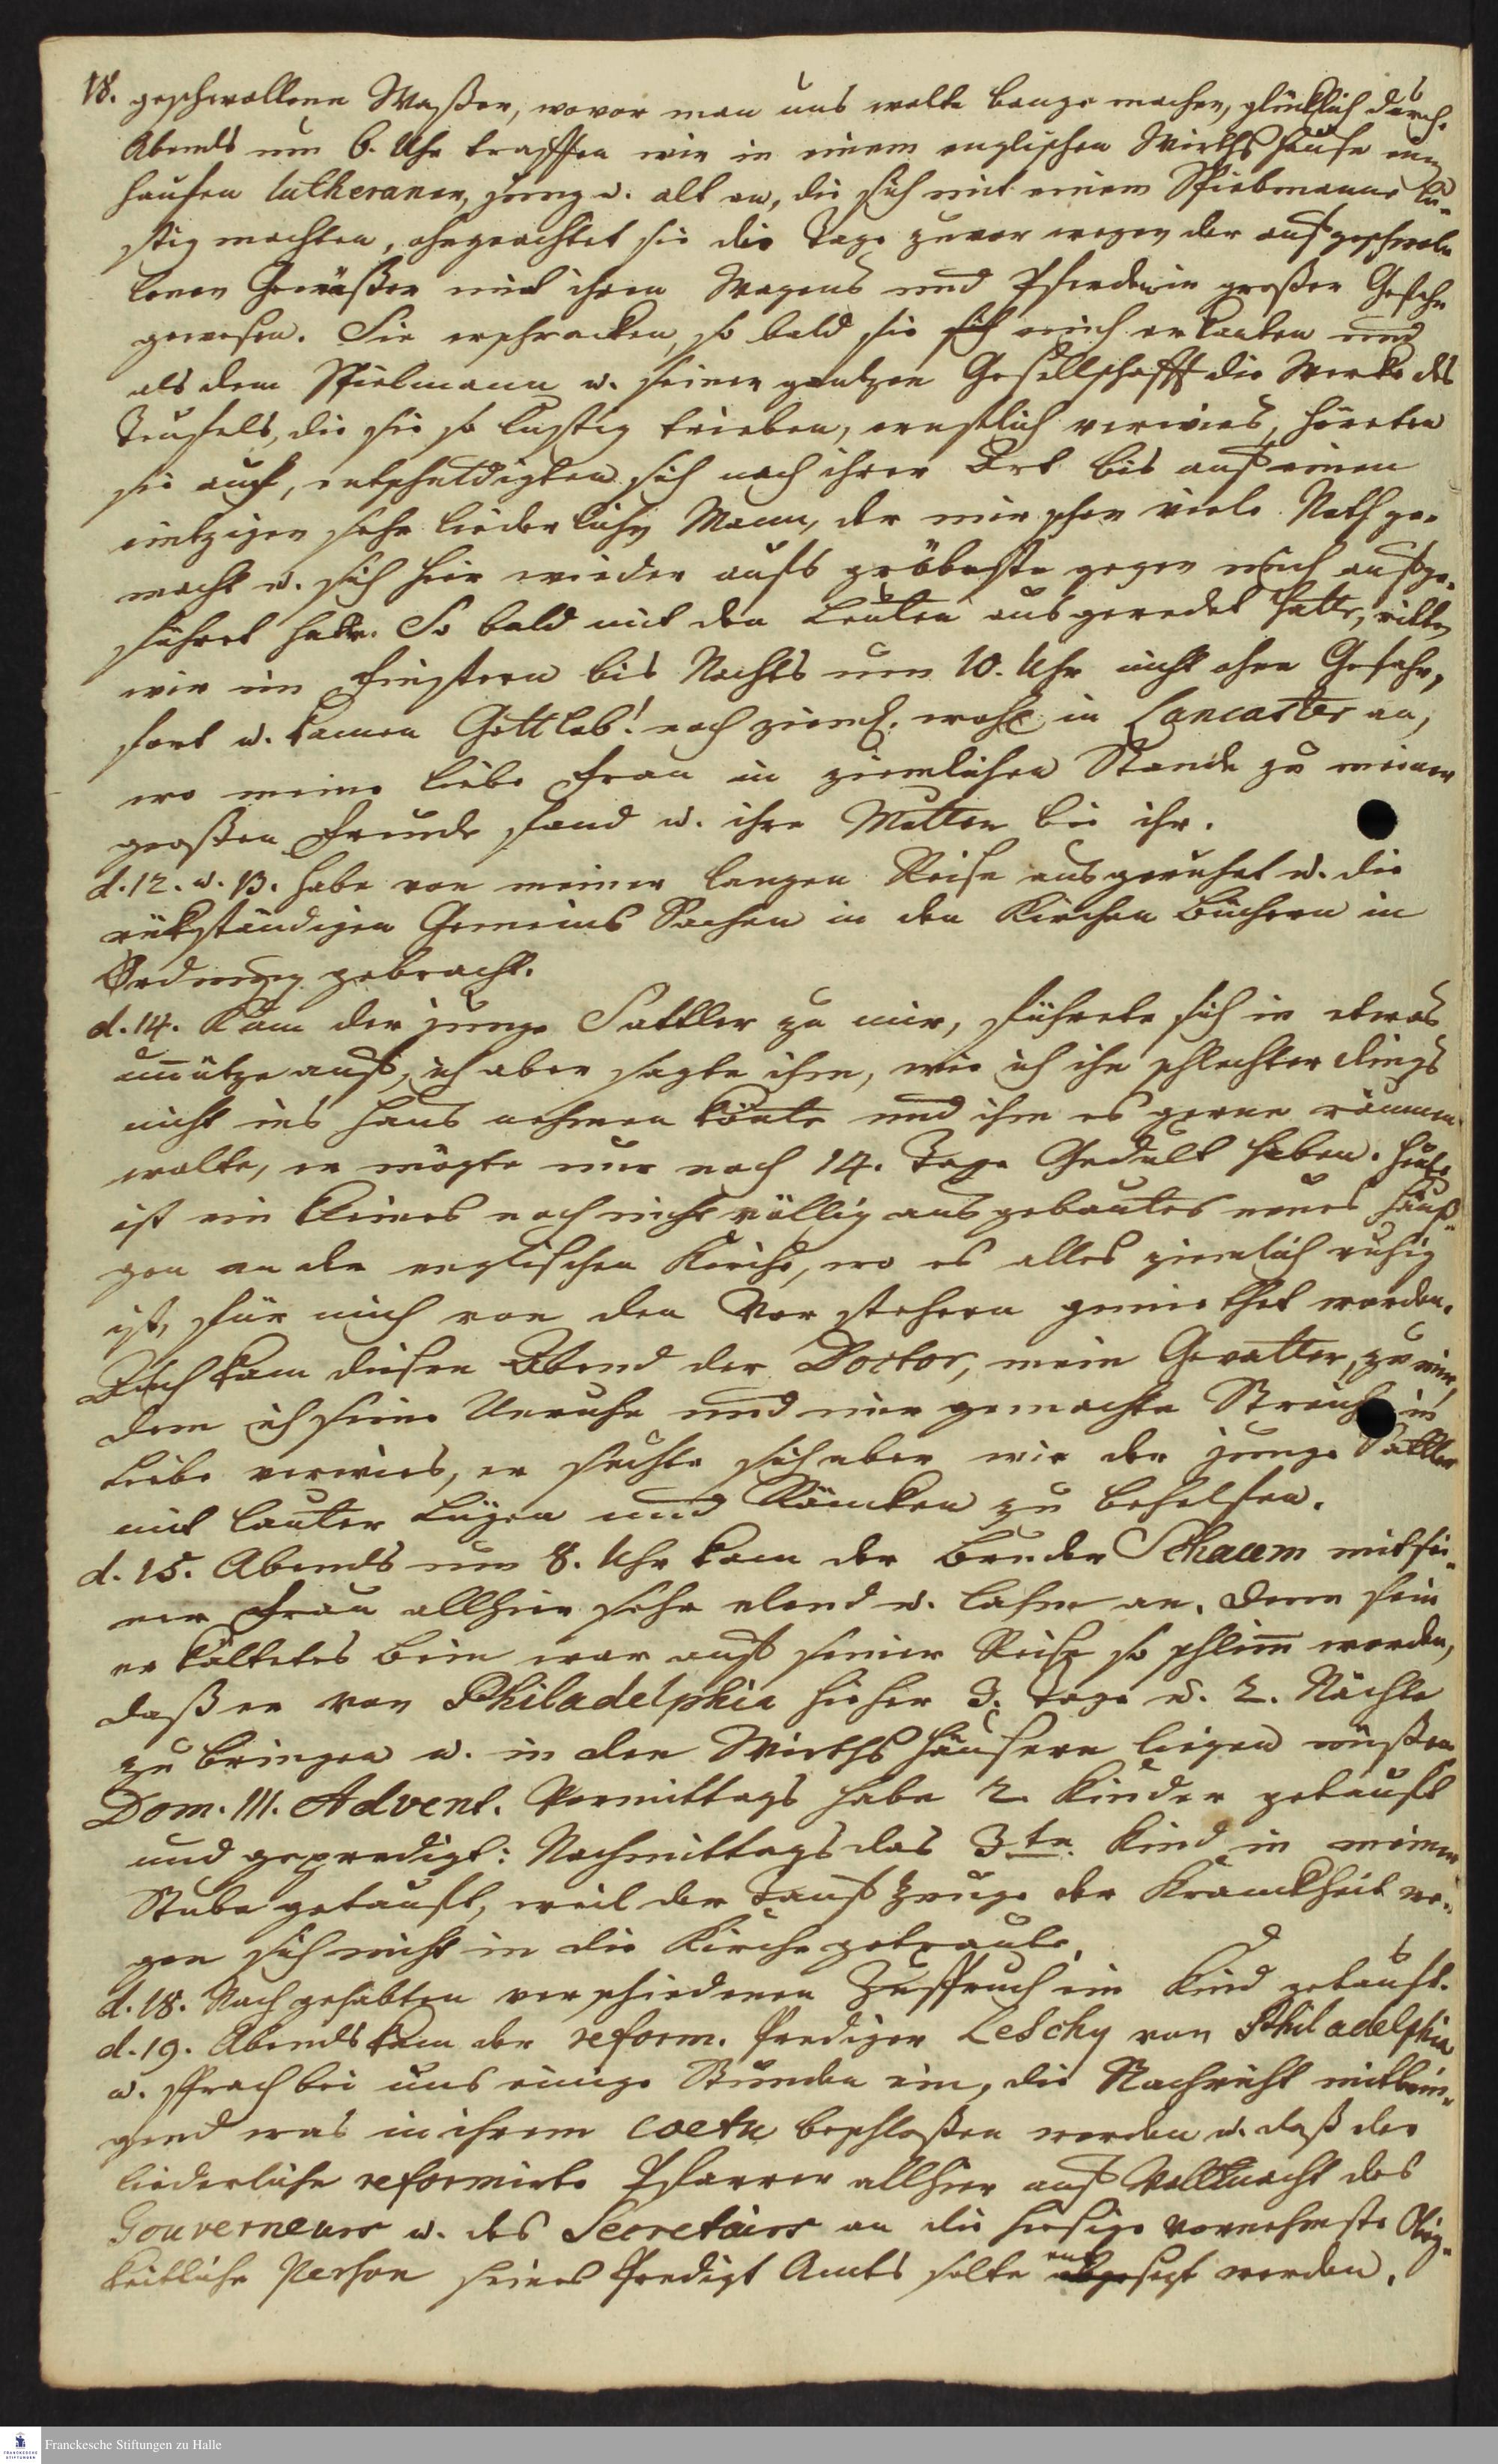 18. geschwollene Waßer, wovor man uns wolte bange machen, glücklich durch.
Abends um 6. Uhr traffen wir in einem englischen Wirthshause einen
hauffen lutheraner, jung u. alt an, die sich mit einem Spielmanne lu-
stig machten, ohngeachtet sie die Tage zuvor wegen der aufgeschwol-
lenen Gewäßer mit ihren Wagens und Pferden in großer Gefahr
gewesen. Sie erschracken, so bald sie sich mich erkanten und
als dem Spielmann u. seiner gantzen Gesellschafft die Werke des
Teufels, die sie so lustig trieben, ernstlich verwies, höreten
sie auf, entschuldigten sich nach ihrer Art bis auf einen
eintzigen sehr liederlichen Mann, der mir schon viele Noth ge-
macht u. sich hier wieder aufs gröbeste gegen mich aufge-
führet hatte. So bald mit den Leuten ausgeredet hatte, ritten
wir im Finstern bis Nachts um 10. Uhr nicht ohne Gefahr,
fort u. kamen Gottlob! noch zieml. wohl in Lancaster an,
wo meine liebe Frau in ziemlichen Stande zu meiner
großen Freude fand u. ihre Mutter bei ihr.
d. 12. u. 13. habe von meiner langen Reise ausgeruhet u. die
rükständigen Gemeins Sachen in den Kirchen Büchern in
Ordnung gebracht.
d. 14. Kam der junge Sattler zu mir, führete sich in etwas
unnütze auf, ich aber sagte ihm, wie ich ihn schlechterdings
nicht ins Haus nehmen könte und ihm es gerne räumen
wolte, er mögte nur noch 14. Tage Gedult haben. Heute
ist ein kleines noch nicht völlig ausgebautes neues Häus-
gen an der englischen Kirche, wo es alles ziemlich ruhig
ist, für mich von den Vorstehern gemiethet worden.
Auch kam diesen Abend der Doctor, mein Gevatter, zu mir,
dem ich seine Unruhe und mir gemachte Streiche in
Liebe verwies, er suchte sich aber wie der junge Sattler
mit lauter Lügen und Räncken zu behelfen.
d. 15. Abends um 8. Uhr kam der Bruder Schaum mit sei-
ner Frau allhier sehr elend u. lahm an. Denn sein
erkältetes Bein war auf seiner Reise so schlimm worden,
daß er von Philadelphia hieher 3. Tage u. 2. Nächte
zubringen u. in den Wirthshäusern liegen müßen.
Dom. III. Advent. Vormittags habe 2. Kinder getauft
und gepredigt: Nachmittags das 3te. Kind in meiner
Stube getauft, weil der Taufzeuge der Kranckheit we-
gen sich nicht in die Kirche getraute.
d. 18. Nach gehabten verschiedenen Zuspruch ein Kind getauft.
d. 19. Abends kam der reform. Prediger Leschy von Philadelphia
u. sprach bei uns einige Stunden ein, die Nachricht mitbrin-
gend was in ihrem coetu beschloßen worden u. daß der
liederliche reformirte Pfarrer allhier auf Vollmacht des
Gouverneurs u. des Secretairs an die hiesige vornehmste Obrig-
keitliche Person seines Predigt Amts solte entsezt werden.
Franckesche Stiftungen zu Halle